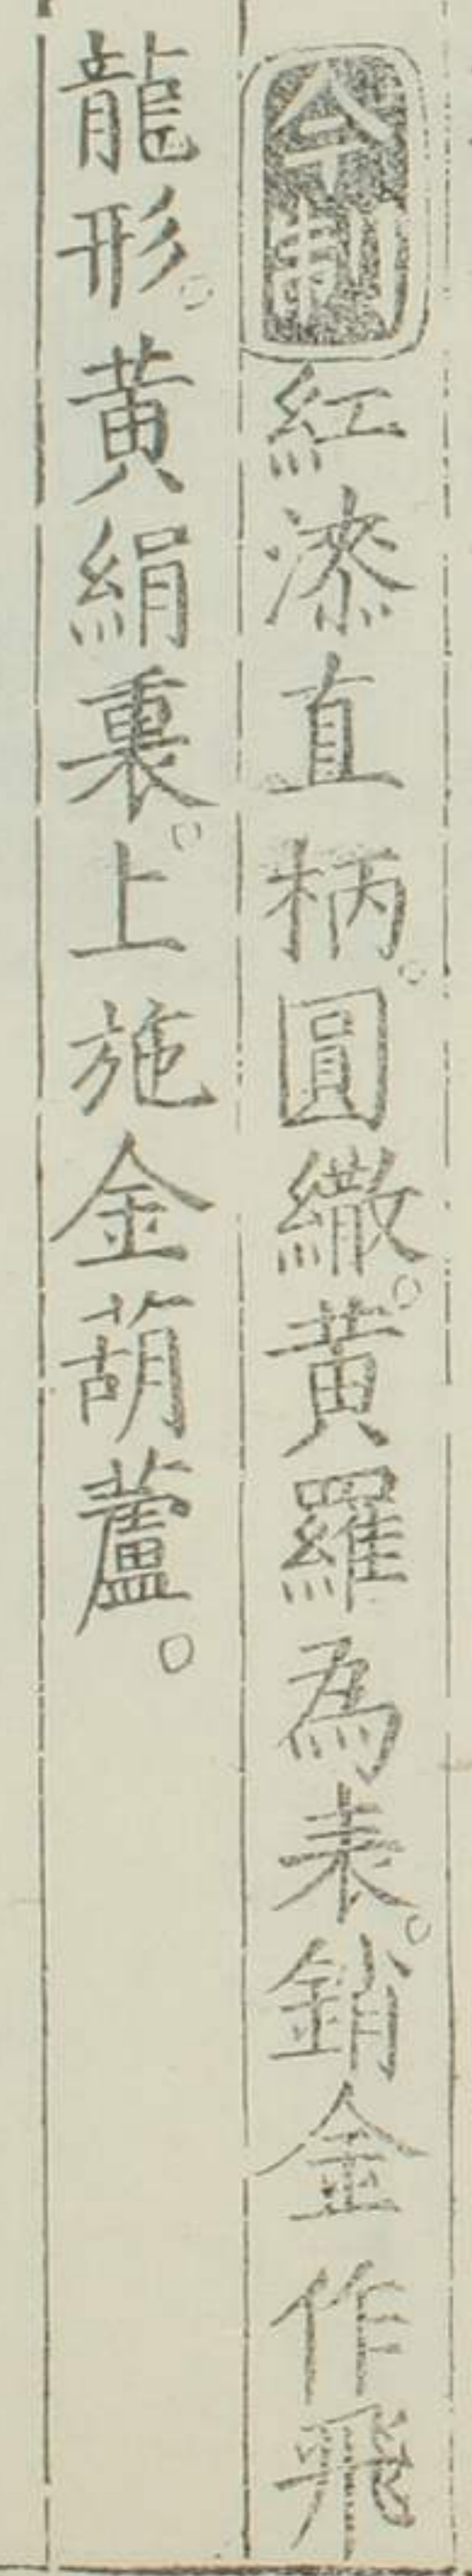 今制紅漆直柄。圓繖。黃羅為表。銷金作飛
龍形。黃絹裏。上施金葫蘆。